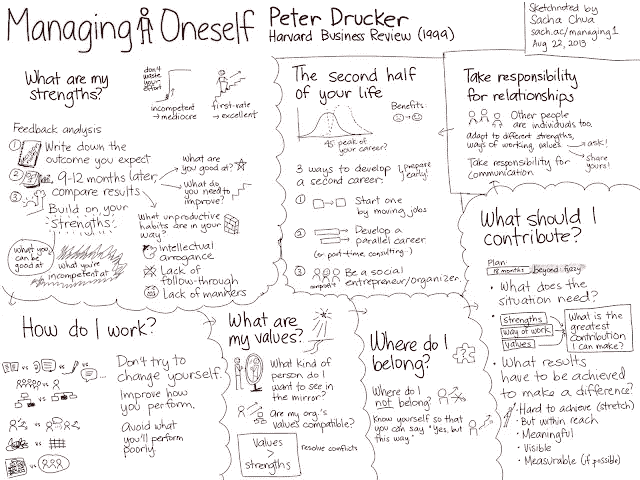 Managing Oneself
Peter Drucker
Harvard Business Review (1999)
Sketchnoted by
Sacha Chua
sach.ac/managing1
Aug 22, 2013
What are my
strengths?
don't
waste
your
effort
incompetent
→ mediocre
first-rate
→ excellent
Feedback analysis
1 Write down the
outcome you expect
2 9-12 months later,
compare results
3 Build on your
strengths
What are
you good at?
What do
you need to
improve?
What unproductive
habits are in your
way?
Intellectual
arrogance
Lack of
follow-through
Lack of manners
what you
can be
good at
what you're
incompetent at
The second half
of your life
Benefits:
45 peak of
your career?
3 ways to develop
a second career:
prepare
early!
1 Start one
by moving jobs
2 Develop a
parallel career
(or part-time consulting...)
3 Be a social
entrepreneur/organizer.
nonprofit
Take responsibility
for relationships
Other people
are individuals too.
adapt to different strengths,
ways of working, values
→ ask!
Take responsibility for
communication.
share
yours!
What should I
contribute?
Plan:
18 months beyond: fuzzy
• What does the
situation need?
strengths
way of work
values
What is the
greatest
contribution
I can make?
• What results
have to be achieved
to make a difference?
• Hard to achieve (stretch)
• But within reach
• Meaningful
• Visible
• Measurable (if possible)
How do I work?
vs vs vs
vs
vs
vs
vs
vs
Don't try to
change yourself.
Improve how
you perform.
Avoid what
you'll perform
poorly.
What are
my values?
What kind of
person do I
want to see in
the mirror?
Are my org.'s
values compatible?
Values
>
strengths
resolve conflicts
Where do I
belong?
Where do I
not belong?
Know yourself so that
you can say "Yes, but
this way."